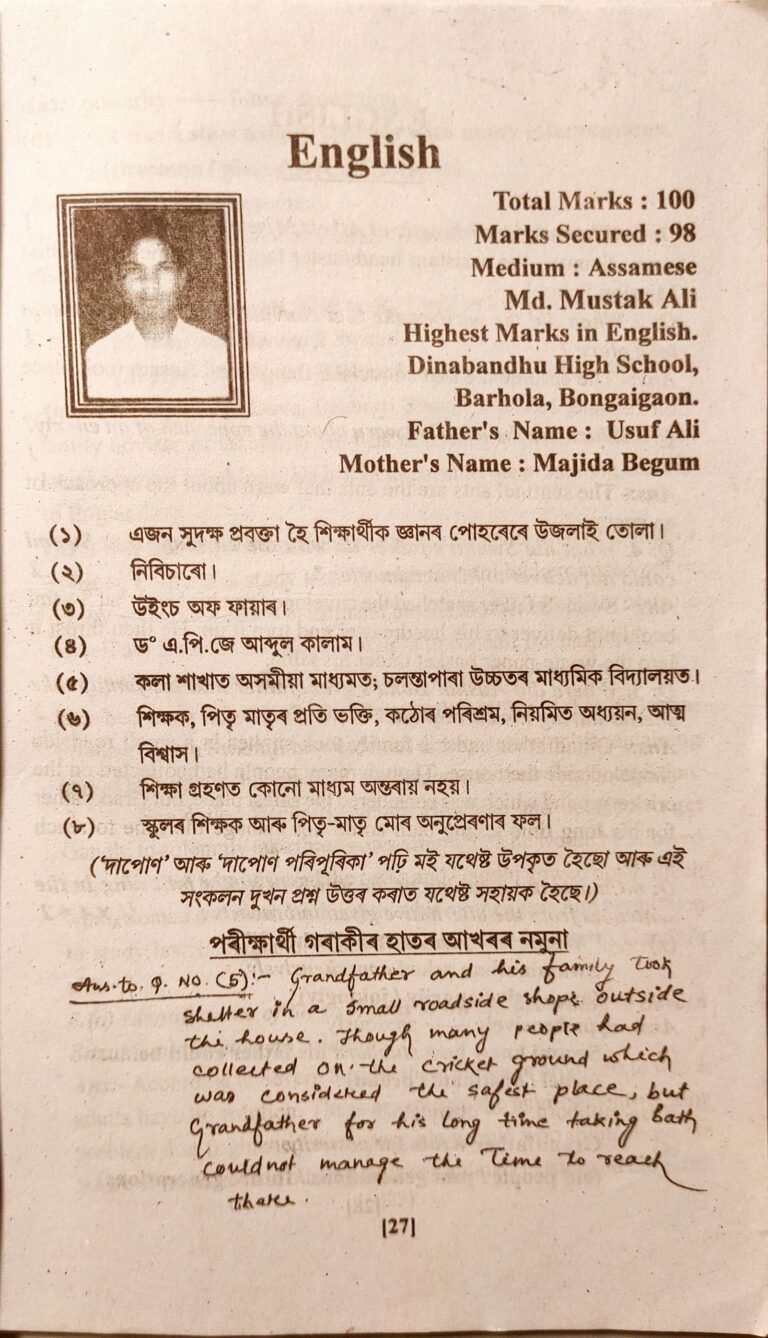 English
Total Marks : 100
Marks Secured : 98
Medium : Assamese
Md. Mustak Ali
Highest Marks in English.
Dinabandhu High School,
Barhola, Bongaigaon.
Father's Name : Usuf Ali
Mother's Name : Majida Begum
(১) এজন সুদক্ষ প্ৰবক্তা হৈ শিক্ষাৰ্থীক জ্ঞানৰ পোহৰেৰে উজলাই তোলা।
(২) নিবিচাৰো।
(৩) উইংচ অফ ফায়াৰ।
(৪) ড° এ.পি.জে আব্দুল কালাম।
(৫) কলা শাখাত অসমীয়া মাধ্যমত; চলন্তাপাৰা উচ্চতৰ মাধ্যমিক বিদ্যালয়ত।
(৬) শিক্ষক, পিতৃ মাতৃৰ প্ৰতি ভক্তি, কঠোৰ পৰিশ্ৰম, নিয়মিত অধ্যয়ন, আত্ম
বিশ্বাস।
(৭) শিক্ষা গ্ৰহণত কোনো মাধ্যম অন্তৰায় নহয়।
(৮) স্কুলৰ শিক্ষক আৰু পিতৃ-মাতৃ মোৰ অনুপ্ৰেৰণাৰ ফল।
('দাপোণ' আৰু 'দাপোণ পৰিপূৰিকা' পঢ়ি মই যথেষ্ট উপকৃত হৈছো আৰু এই
সংকলন দুখন প্ৰশ্ন উত্তৰ কৰাত যথেষ্ট সহায়ক হৈছে।)
পৰীক্ষাৰ্থী গৰাকীৰ হাতৰ আখৰৰ নমুনা
Ans. to. Q. NO. (5):- Grandfather and his family took
shelter in a small roadside shope outside
the house. Though many people had
collected on the cricket ground which
was considered the safest place, but
Grandfather for his long time taking bath
couldnot manage the Time to reach
there.
[27]